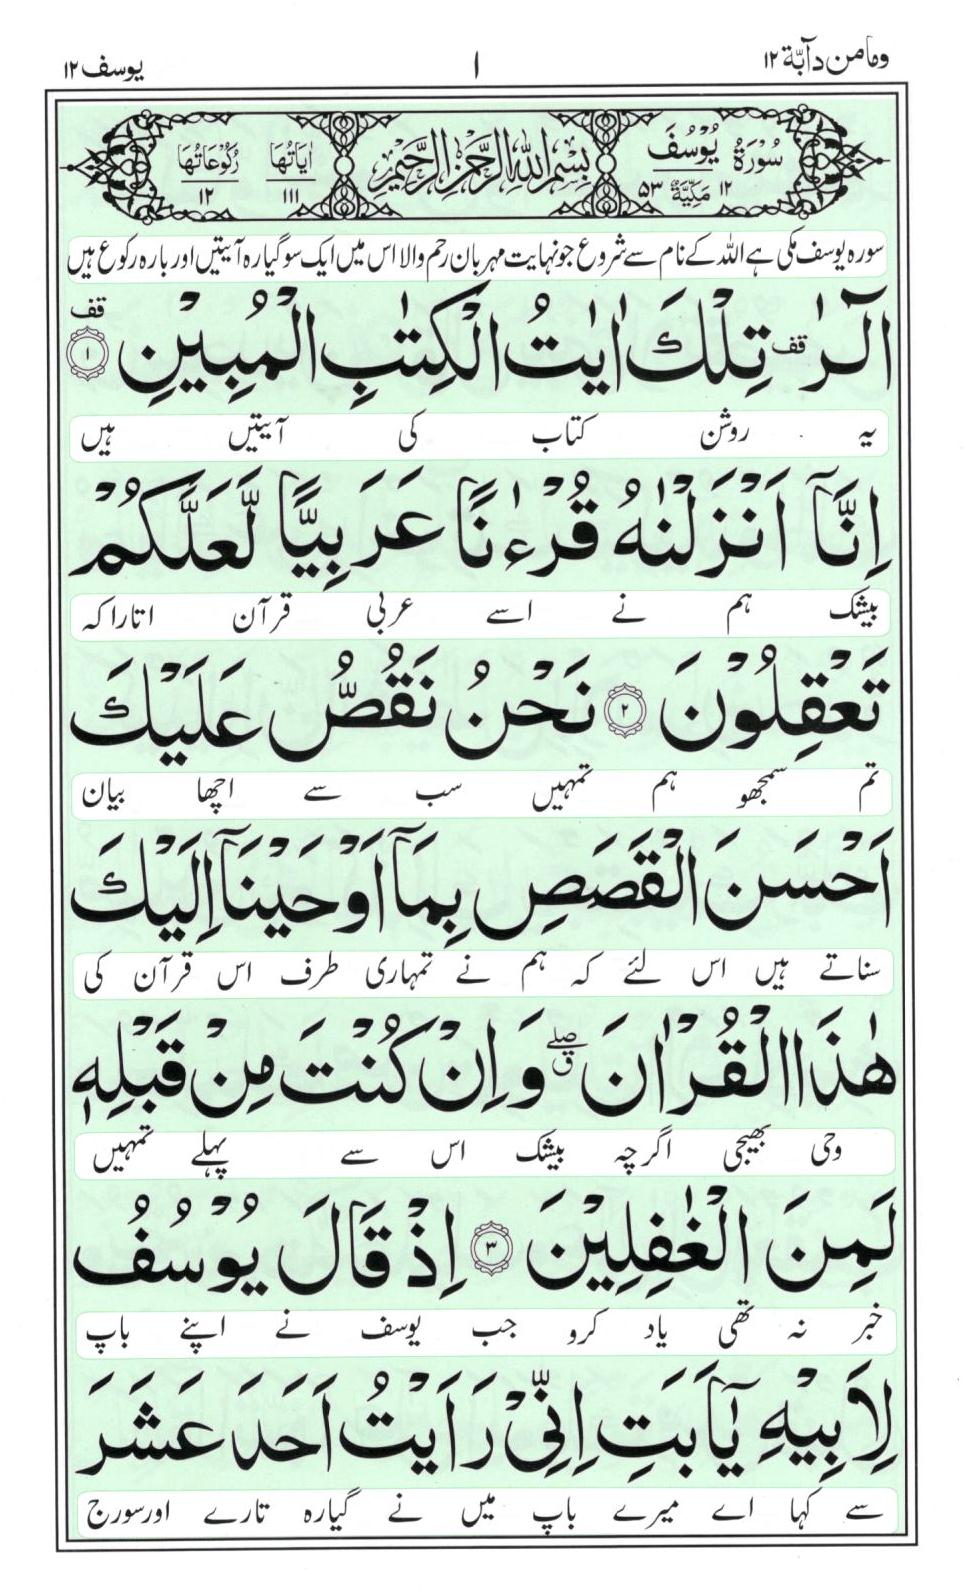 وما من دآبّة ١٢
١
يوسف ١٢
سُوْرَةُ يُوْسُفَ
١٢ مَكِّيَّةٌ ٥٣
بِسْمِ اللّٰهِ الرَّحْمٰنِ الرَّحِيْمِ
اٰيَاتُهَا ١١١
رُكُوْعَاتُهَا ١٢
سورہ یوسف مکی ہے اللہ کے نام سے شروع جو نہایت مہربان رحم والا اس میں ایک سو گیارہ آیتیں اور بارہ رکوع ہیں
الٓرٰ ۫قف تِلْكَ اٰيٰتُ الْكِتٰبِ الْمُبِيْنِ ۝۱ قف
یہ روشن کتاب کی آیتیں ہیں
اِنَّاۤ اَنْزَلْنٰهُ قُرْءٰنًا عَرَبِيًّا لَّعَلَّكُمْ
بیشک ہم نے اسے عربی قرآن اتارا کہ
تَعْقِلُوْنَ ۝۲ نَحْنُ نَقُصُّ عَلَيْكَ
تم سمجھو ہم تمہیں سب سے اچھا بیان
اَحْسَنَ الْقَصَصِ بِمَاۤ اَوْحَيْنَاۤ اِلَيْكَ
سناتے ہیں اس لئے کہ ہم نے تمہاری طرف اس قرآن کی
هٰذَا الْقُرْاٰنَ ۖق وَ اِنْ كُنْتَ مِنْ قَبْلِهٖ
وحی بھیجی اگرچہ بیشک اس سے پہلے تمہیں
لَمِنَ الْغٰفِلِيْنَ ۝۳ اِذْ قَالَ يُوْسُفُ
خبر نہ تھی یاد کرو جب یوسف نے اپنے باپ
لِاَبِيْهِ يٰۤاَبَتِ اِنِّيْ رَاَيْتُ اَحَدَ عَشَرَ
سے کہا اے میرے باپ میں نے گیارہ تارے اور سورج